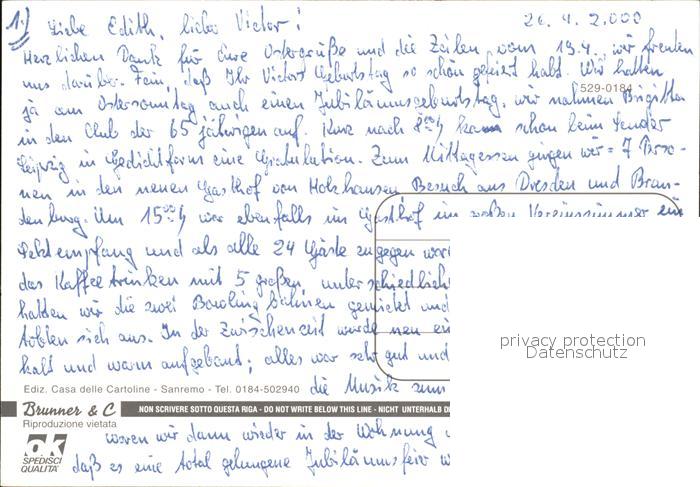 1.) Liebe Edith, lieber Victor! 26.4.2.000
Herzlichen Dank für Eure Ostergrüße und die Zeilen vom 19.4. wir freuten
uns darüber. Fein, daß Ihr Victors Geburtstag so schön gefeiert habt. Wir hatten
529-0184
ja am Ostersonntag auch einen Jubiläumsgeburtstag, wir nahmen Brigitta
in den Club der 65 jährigen auf. Kurz nach 8⁰⁰h kam schon beim Sender
Leipzig in Gedichtform eine Gratulation. Zum Mittagessen gingen wir = 7 Perso-
nen in den neuen Gasthof von Holzhausen Besuch aus Dresden und Bran-
denburg. Um 15⁰⁰h war ebenfalls im Gasthof im großen Vereinszimmer ein
Sektempfang und als alle 24 Gäste zugegen
das Kaffeetrinken mit 5 großen, unterschiedlich
hatten wir die zwei Bowling Bahnen gemietet und
tobten sich aus. In der Zwischenzeit wurde
kalt und warm aufgebaut; alles war sehr gut und
privacy protection
Datenschutz
Ediz. Casa delle Cartoline - Sanremo - Tel. 0184-502940
die Musik zum
Brunner & C
.NON SCRIVERE SOTTO QUESTA RIGA - DO NOT WRITE BELOW THIS LINE - NICHT UNTERHALB
Riproduzione vietata
waren wir dann wieder in der Wohnung
ok
SPEDISCI
QUALITA'
daß es eine total gelungene Jubiläumsfeier